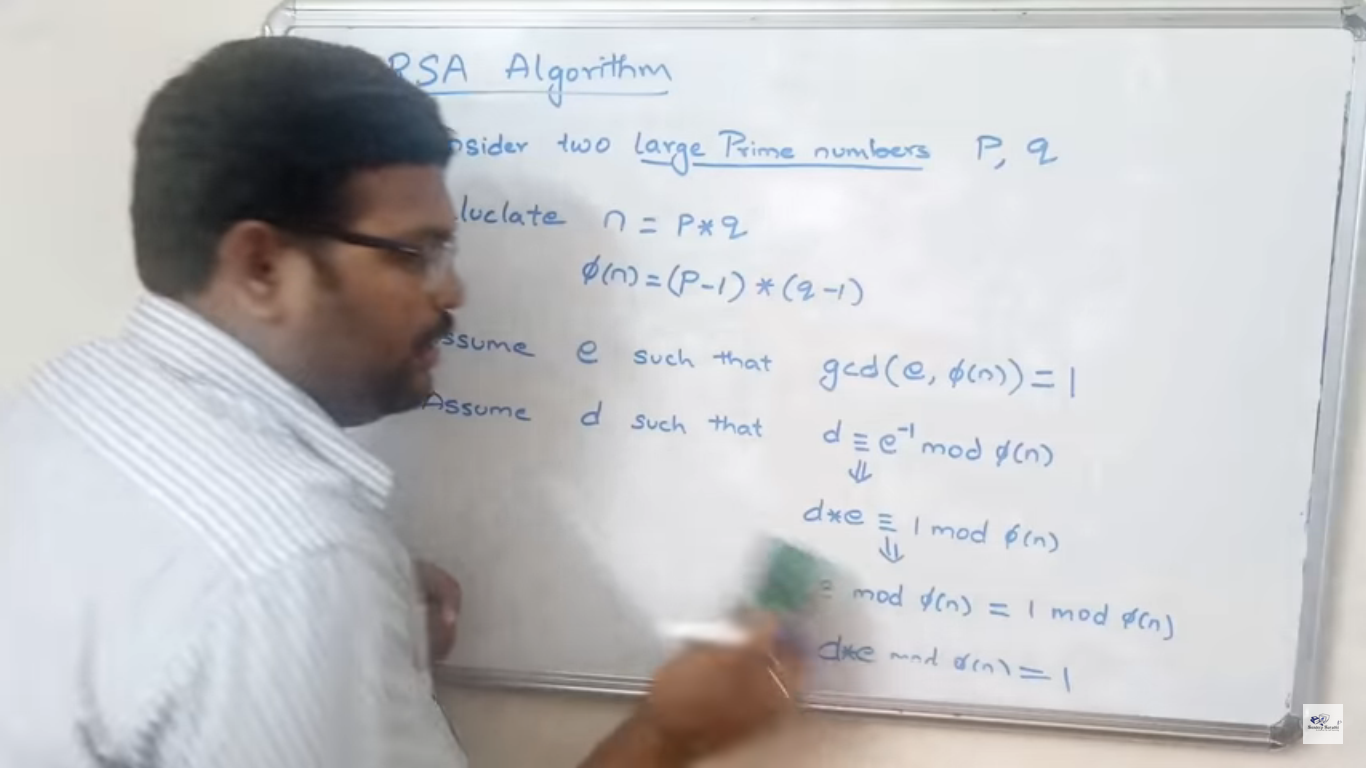 RSA Algorithm
nsider two large Prime numbers P, q
luclate n = P*q
φ(n) = (P-1) * (q-1)
ssume e such that gcd(e, φ(n)) = 1
Assume d such that d ≡ e⁻¹ mod φ(n)
⇓
d*e ≡ 1 mod φ(n)
⇓
e mod φ(n) = 1 mod φ(n)
d*e mod φ(n) = 1